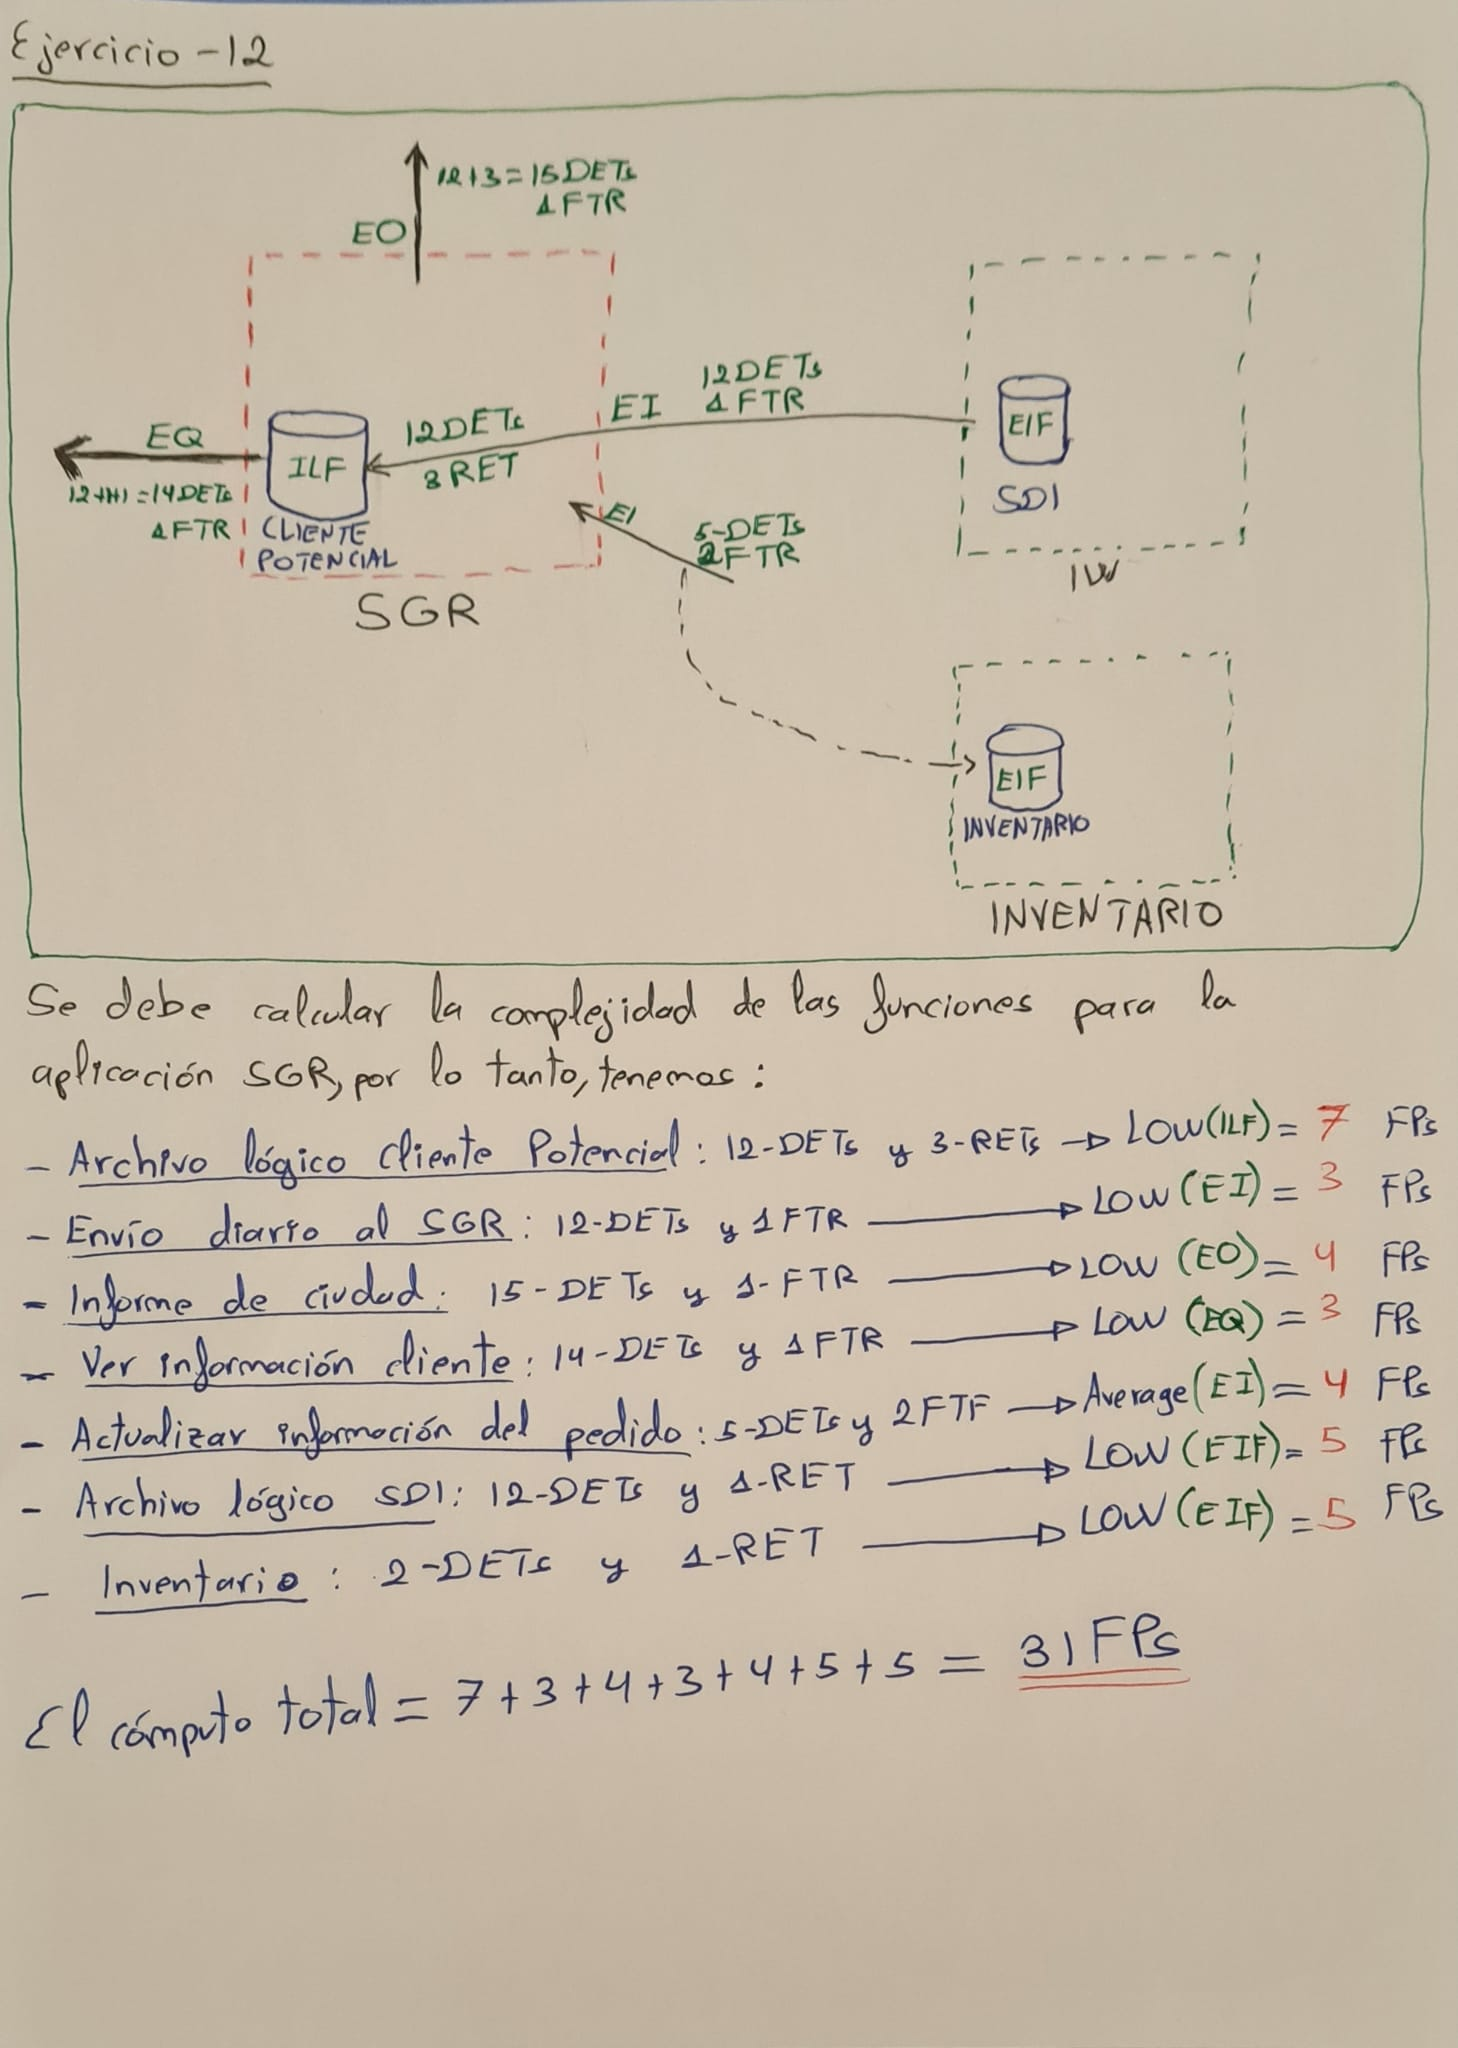 Ejercicio-12
12+3=15DETs
1FTR
EO
12DETs
EI 1FTR
EIF
SDI
IW
EQ
12+1+1=14DETs
1FTR
ILF
12DETs
3RET
CLIENTE
POTENCIAL
EI
5-DETs
2FTR
SGR
EIF
INVENTARIO
INVENTARIO
Se debe calcular la complejidad de las funciones para la
aplicación SGR, por lo tanto, tenemos:
- Archivo lógico Cliente Potencial: 12-DETs y 3-RETs → LOW(ILF)= 7 FPs
- Envío diario al SGR: 12-DETs y 1FTR → LOW(EI)= 3 FPs
- Informe de ciudad: 15-DETs y 1-FTR → LOW (EO)= 4 FPs
- Ver información cliente: 14-DETs y 1FTR → LOW (EQ) = 3 FPs
- Actualizar información del pedido: 5-DETs y 2FTF → Average(EI)= 4 FPs
- Archivo lógico SDI: 12-DETs y 1-RET → LOW(EIF)= 5 FPs
- Inventario: 2-DETs y 1-RET → LOW(EIF) = 5 FPs
El cómputo total = 7+3+4+3+4+5+5 = 31FPs